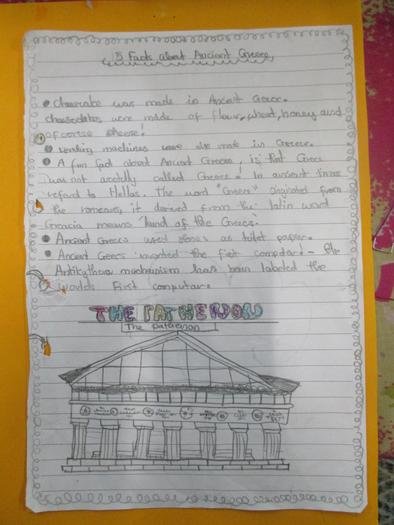 5 Facts about Ancient Greece
Cheesecake was made in Ancient Greece.
cheesecakes were made of flour, wheat, honey and
of course cheese!
Vending machines were also made in Greece.
A fun fact about Ancient Greece, is that Greece
was not actually called Greece! In ancient times
referd to Hellas. The word "Greece" originated from
the romans, it derived from the latin word
Graecia means 'land of the Greeks'
Ancient Greeks used stones as toilet paper.
Ancient Greeks invented the first computer! - the
Antikythera mechanism has been labeled the
worlds First computer.
THE PATHENON
The pathenon